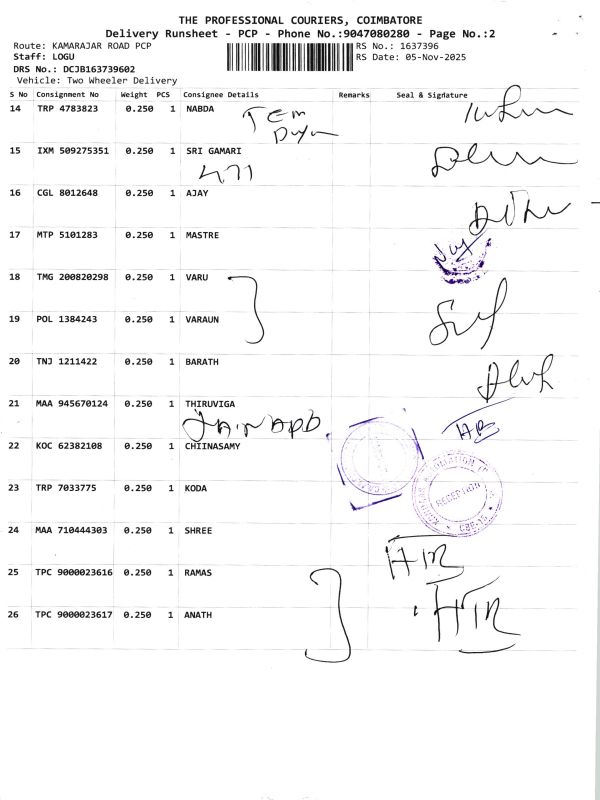 THE PROFESSIONAL COURIERS, COIMBATORE
Delivery Runsheet - PCP - Phone No.:9047080280 - Page No.:2
Route: KAMARAJAR ROAD PCP RS No.: 1637396
Staff: LOGU RS Date: 05-Nov-2025
DRS No.: DCJB163739602
Vehicle: Two Wheeler Delivery
S No Consignment No Weight PCS Consignee Details Remarks Seal & Signature
14 TRP 4783823 0.250 1 NABDA
15 IXM 509275351 0.250 1 SRI GAMARI
16 CGL 8012648 0.250 1 AJAY
17 MTP 5101283 0.250 1 MASTRE
18 TMG 200820298 0.250 1 VARU
19 POL 1384243 0.250 1 VARAUN
20 TNJ 1211422 0.250 1 BARATH
21 MAA 945670124 0.250 1 THIRUVIGA
22 KOC 62382108 0.250 1 CHIINASAMY
23 TRP 7033775 0.250 1 KODA
RECEPTION
CBE-15
24 MAA 710444303 0.250 1 SHREE
25 TPC 9000023616 0.250 1 RAMAS
26 TPC 9000023617 0.250 1 ANATH